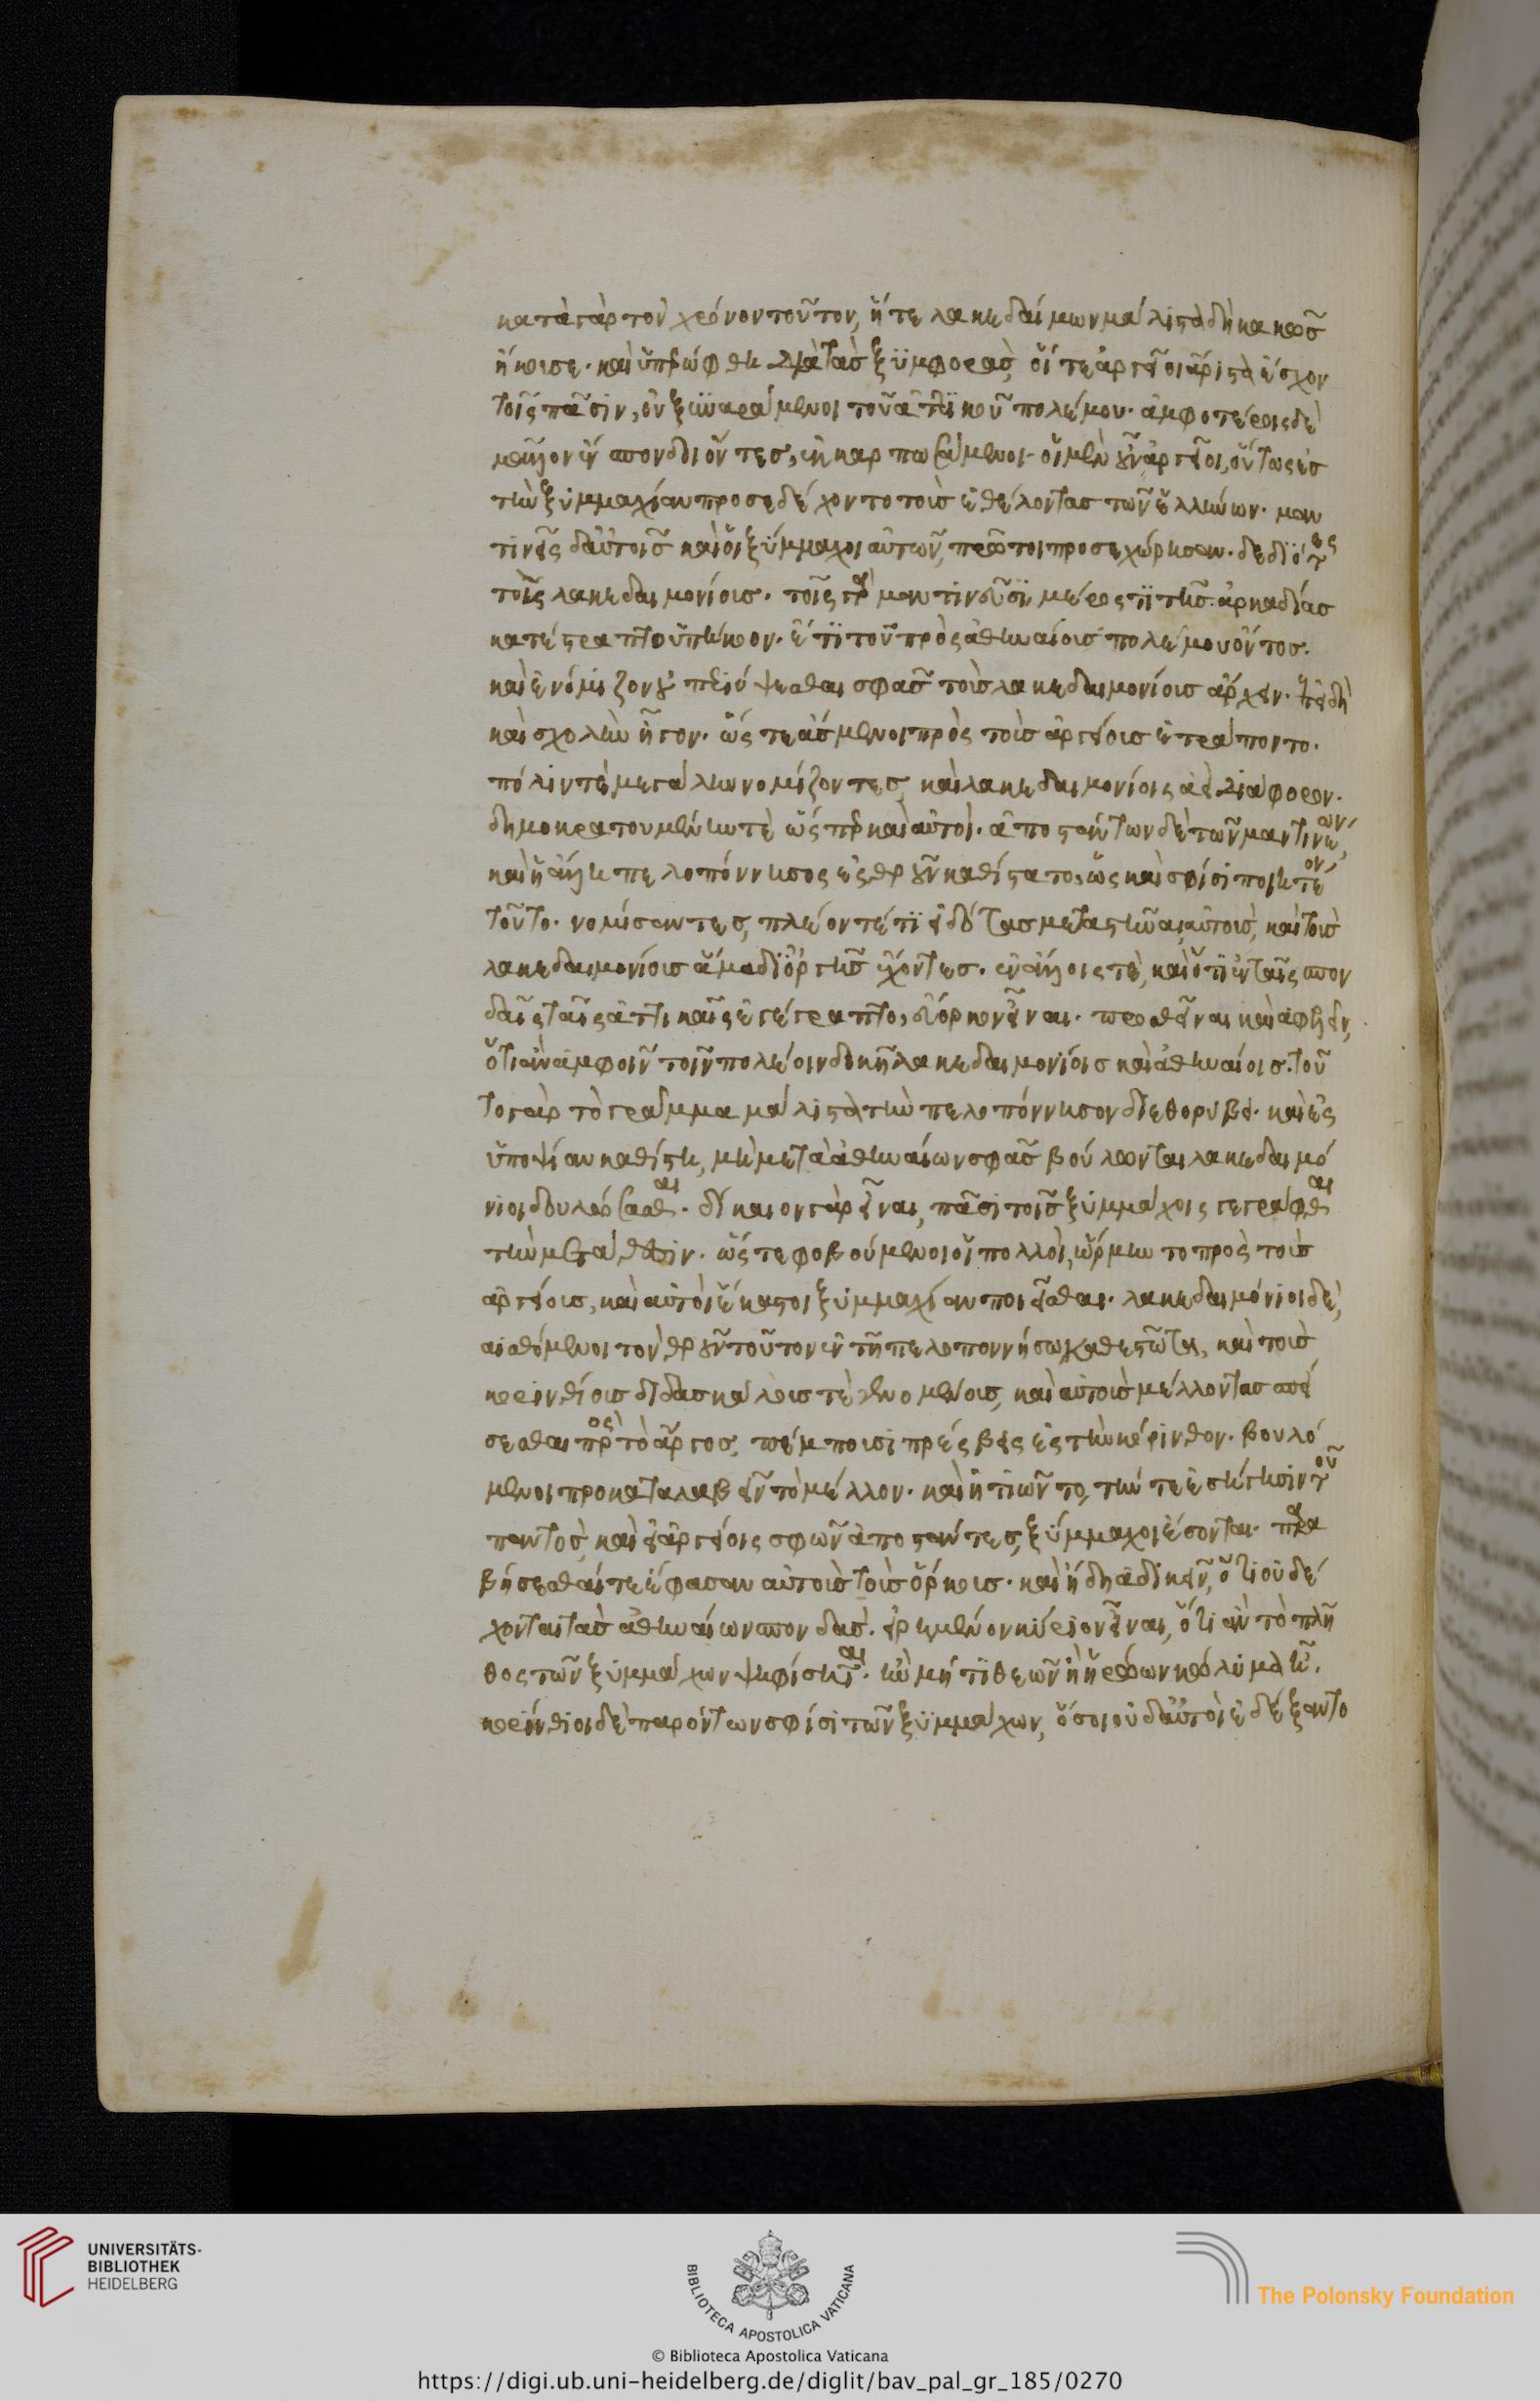 κατὰ γὰρ τὸν χρόνον τοῦτον, ἥ τε λακεδαίμων μάλιστα δὴ κακῶς
ἤκουσε· καὶ ὑπερώφθη διὰ τὰς ξυμφορὰς, οἵ τε ἀργεῖοι ἄριστα ἔσχον
τοῖς πᾶσιν, οὐ ξυναράμενοι τοῦ ἀττικοῦ πολέμου· ἀμφοτέροις δὲ
μᾶλλον ἔνσπονδοι ὄντες, ἐκκαρπωσάμενοι· οἱ μὲν οὖν ἀργεῖοι, οὕτως ἐς
τὴν ξυμμαχίαν προσεδέχοντο τοὺς ἐθέλοντας τῶν ἑλλήνων· μαν
τινεῖς δ' αὐτοῖς καὶ οἱ ξύμμαχοι αὐτῶν, πρῶτοι προσεχώρησαν· δεδιότες
τοὺς λακεδαιμονίους· τοῖς γὰρ μαντινεῦσι, μέρος τι τῆς ἀρκαδίας
κατέστραπτο ὑπήκοον· ἔτι τοῦ πρὸς ἀθηναίους πολέμου ὄντος·
καὶ ἐνόμιζον οὐ περιόψεσθαι σφᾶς τοὺς λακεδαιμονίους ἄρχειν· ἐπειδὴ
καὶ σχολὴν ἦγον· ὥστε ἄσμενοι πρὸς τοὺς ἀργείους ἐτράποντο·
πόλιν τε μεγάλην νομίζοντες, καὶ λακεδαιμονίοις ἀεὶ διάφορον·
δημοκρατουμένην τε ὥσπερ καὶ αὐτοί· ἀποστάντων δὲ τῶν μαντινέων,
καὶ ἡ ἄλλη πελοπόννησος ἐς θροῦν καθίστατο, ὡς καὶ σφίσι ποιητέον
τοῦτο· νομίσαντες, πλέον τέ τι εἰδότας μεταστῆναι αὐτοὺς, καὶ τοὺς
λακεδαιμονίους ἅμα δι' ὀργῆς ἔχοντες· ἐν ἄλλοις τὲ, καὶ ὅτι ἐν ταῖς σπον
δαῖς ταῖς ἀττικαῖς ἐγέγραπτο, εὔορκον εἶναι· προσθεῖναι καὶ ἀφελεῖν,
ὅτι ἂν ἀμφοῖν τοῖν πολέοιν δοκῇ λακεδαιμονίοις καὶ ἀθηναίοις· τοῦ
το γὰρ τὸ γράμμα μάλιστα τὴν πελοπόννησον διεθορύβει· καὶ ἐς
ὑποψίαν καθίστη, μὴ μετὰ ἀθηναίων σφᾶς βούλωνται λακεδαιμό
νιοι δουλώσασθαι· δίκαιον γὰρ εἶναι, πᾶσι τοῖς ξυμμάχοις γεγράφθαι
τὴν μετάθεσιν· ὥστε φοβούμενοι οἱ πολλοὶ, ὥρμηντο πρὸς τοὺς
ἀργείους, καὶ αὐτοὶ ἕκαστοι ξυμμαχίαν ποιεῖσθαι· λακεδαιμόνιοι δὲ,
αἰσθόμενοι τὸν θροῦν τοῦτον ἐν τῇ πελοποννήσῳ καθεστῶτα, καὶ τοὺς
κορινθίους διδασκάλους τὲ γενομένους, καὶ αὐτοὺς μέλλοντας σπεί
σεσθαι πρὸς τὸ ἄργος, πέμπουσι πρέσβεις ἐς τὴν κόρινθον· βουλό
μενοι προκαταλαβεῖν τὸ μέλλον· καὶ ᾐτιῶντο, τήν τε ἐσήγησιν τοῦ
παντὸς, καὶ εἰ ἀργείοις σφῶν ἀποστάντες, ξύμμαχοι ἔσονται· παρα
βήσεσθαί τε ἔφασαν αὐτοὺς τοὺς ὅρκους· καὶ ἤδη ἀδικεῖν, ὅτι οὐ δέ
χονται τὰς ἀθηναίων σπονδάς· εἰρημένον κύριον εἶναι, ὅτι ἂν τὸ πλῆ
θος τῶν ξυμμάχων ψηφίσηται· ἢν μή τι θεῶν ἢ ἡρώων κώλυμα ᾖ·
κορίνθιοι δὲ παρόντων σφίσι τῶν ξυμμάχων, ὅσοι οὐδ' αὐτοὶ ἐδέξαντο
UNIVERSITÄTS-
BIBLIOTHEK
HEIDELBERG
BIBLIOTECA APOSTOLICA VATICANA
The Polonsky Foundation
© Biblioteca Apostolica Vaticana
https://digi.ub.uni-heidelberg.de/diglit/bav_pal_gr_185/0270